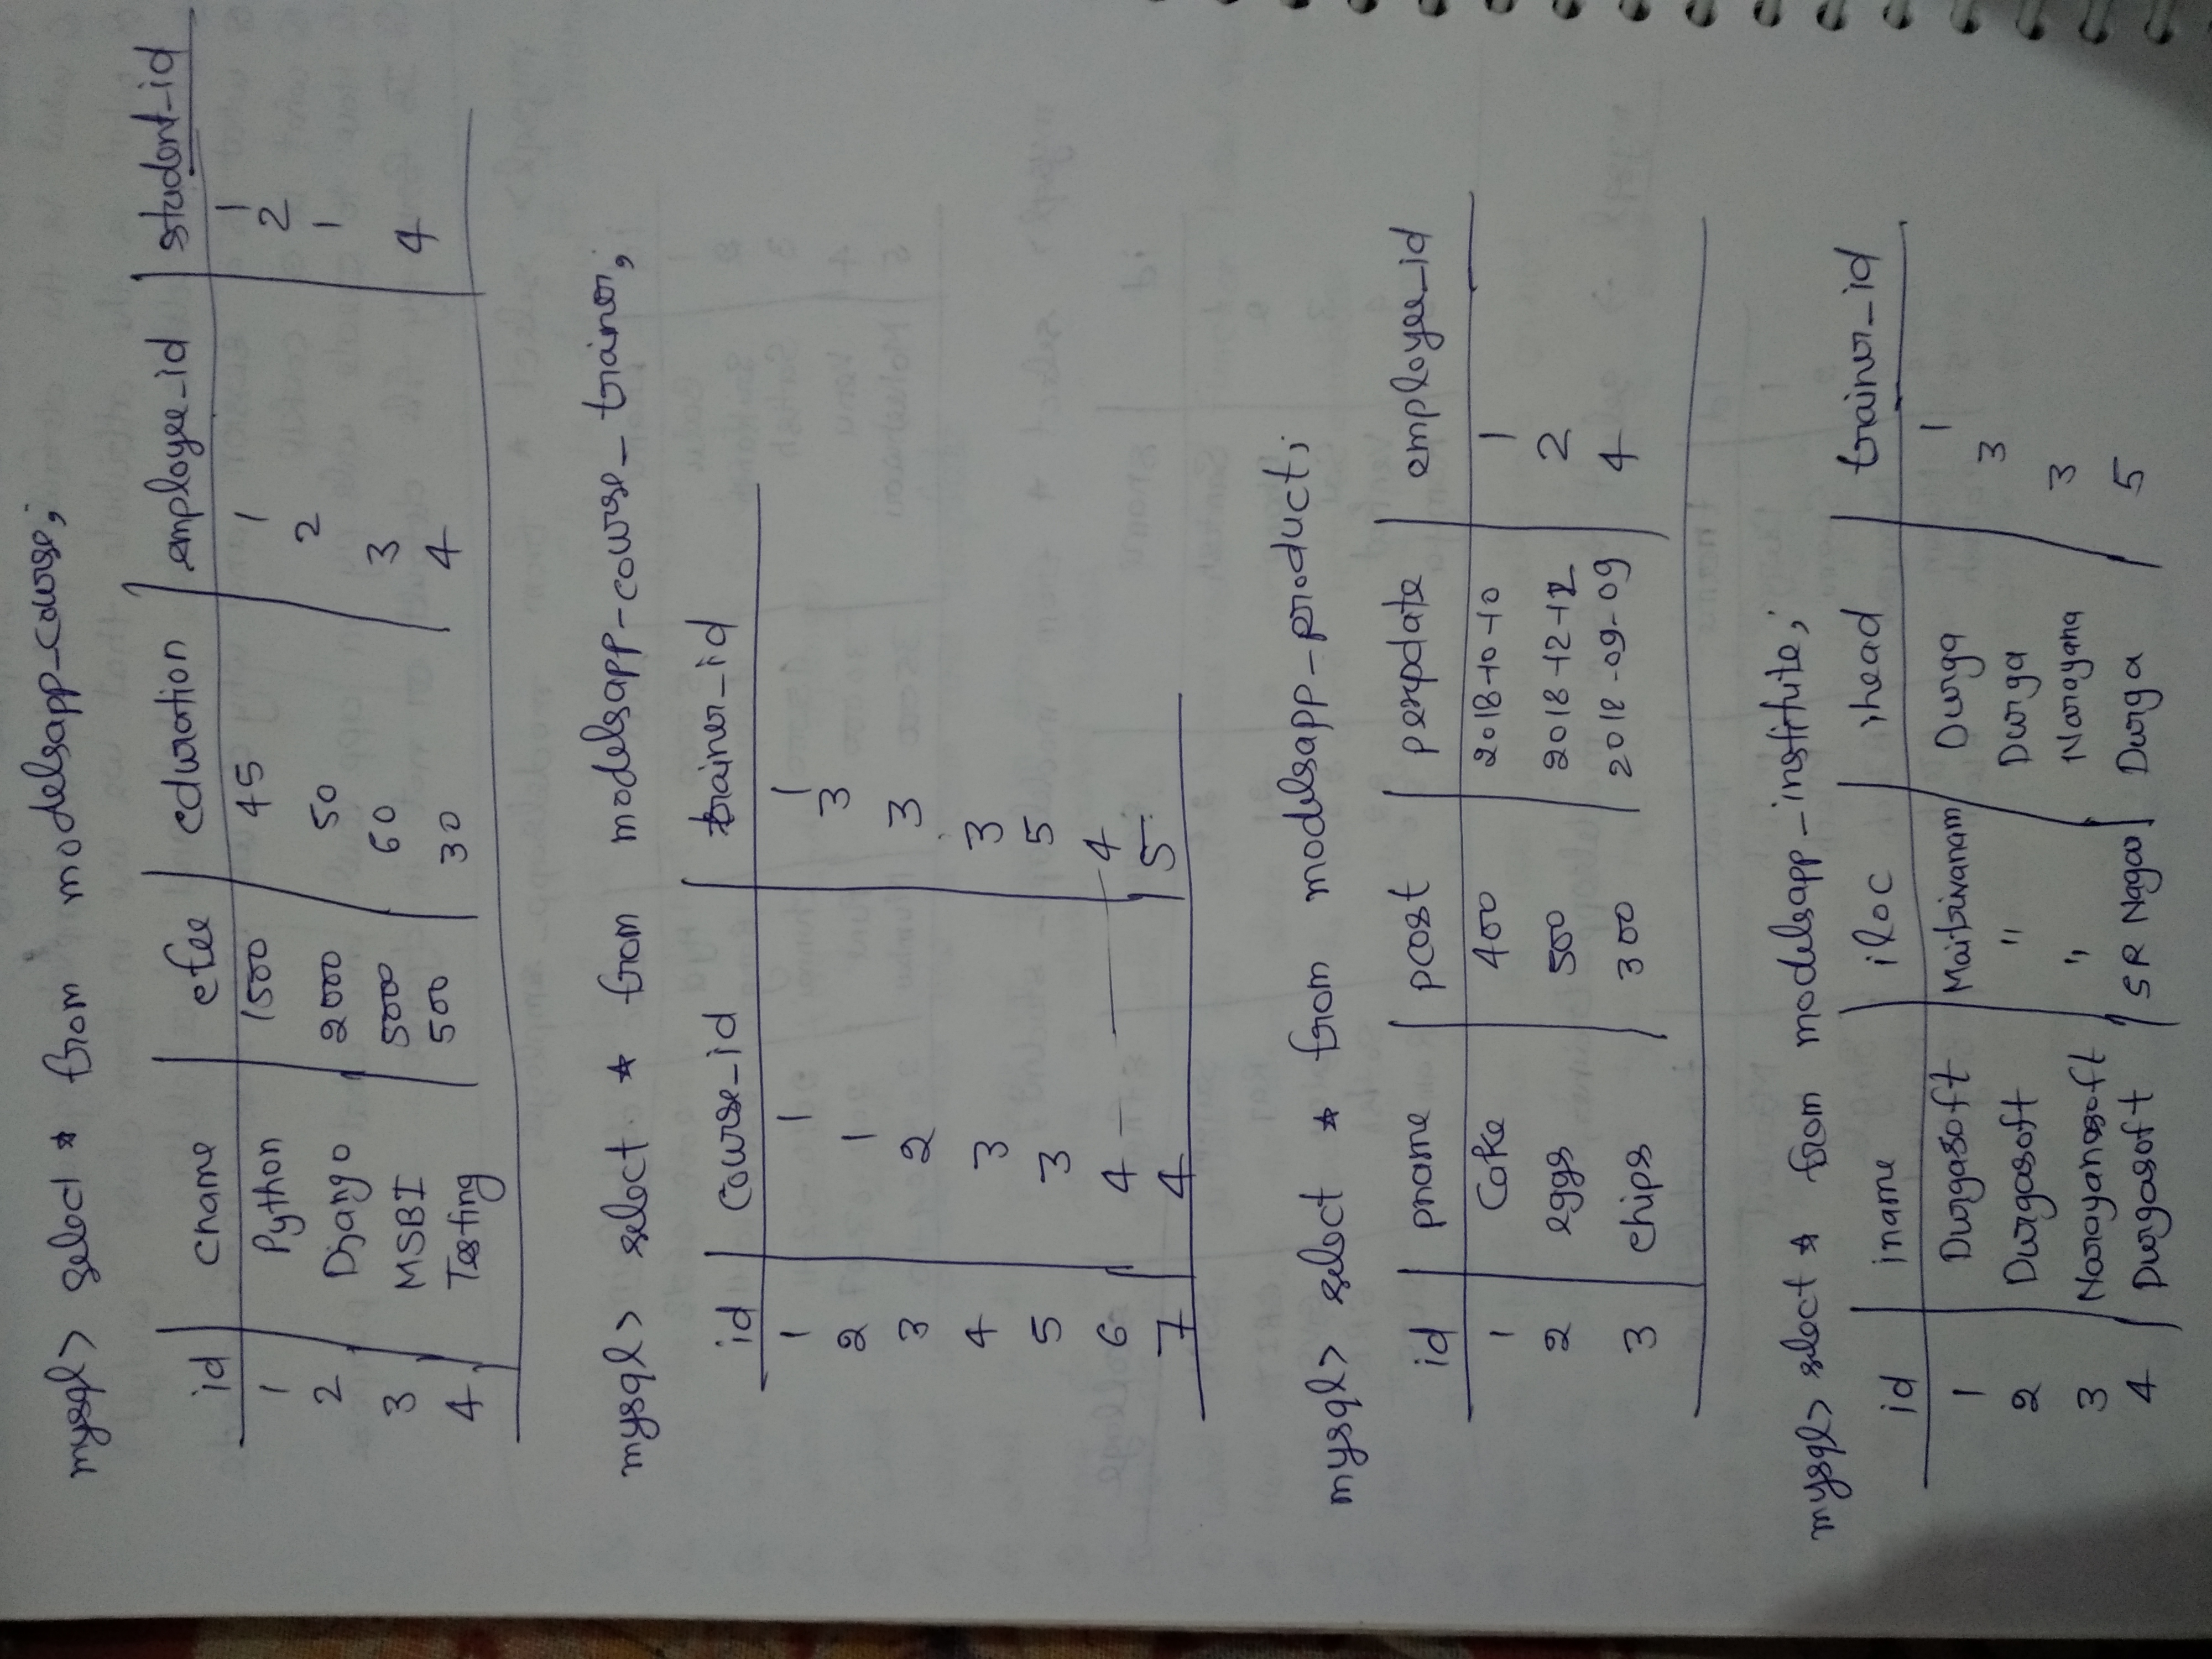 mysql> select * from modelsapp_course;
id cname cfee cduration employee_id student_id
1 Python 1500 45 1 1
2 Django 2000 50 2 2
3 MSBI 5000 60 3 1
4 Testing 500 30 4 4
mysql> select * from modelsapp-course_trainer;
id course_id trainer_id
1 1 1
2 1 3
3 2 3
4 3 3
5 3 5
6 4 4
7 4 5
mysql> select * from modelsapp_product;
id pname pcost pexpdate employee_id
1 Cake 400 2018-10-10 1
2 eggs 500 2018-12-12 2
3 chips 300 2018-09-09 4
mysql> select * from modelsapp_institute;
id iname iloc ihead trainer_id
1 Durgasoft Maitrivanam Durga 1
2 Durgasoft " Durga 3
3 Narayanasoft " Narayana 3
4 Durgasoft SR Nagar Durga 5